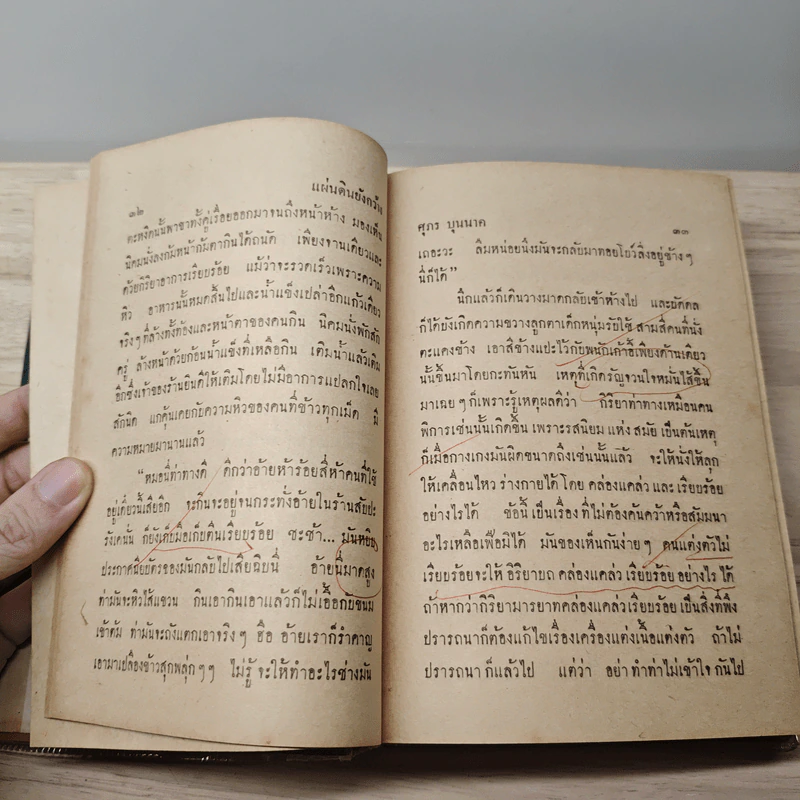 ๓๒
แผ่นดินยังกว้าง
ตะหงิดนั้นพาขาทั้งคู่เรื่อยออกมาจนถึงหน้าห้าง มองเห็น
นิคมนั่งลงก้มหน้าก้มตากินได้ถนัด เพียงจานเดียวและ
ด้วยกิริยาอาการเรียบร้อย แม้ว่าจะรวดเร็วเพราะความ
หิว อาหารนั้นหมดสิ้นไปและน้ำแข็งเปล่าอีกแก้วเดียว
จริงๆ ที่ล้างทั้งท้องและหน้าตาของคนกิน นิคมนั่งพักสัก
ครู่ ล้างหน้าด้วยก้อนน้ำแข็งที่เหลือกิน เติมน้ำแล้วเติม
อีกซึ่งเจ้าของร้านยินดีให้เติมโดยไม่มีอาการแปลกใจเลย
สักนิด แกคุ้นเคยกับความหิวของคนที่ข้าวทุกเม็ด มี
ความหมายมานานแล้ว
“หมอนี่ท่าทางดี ดีกว่าอ้ายห้าร้อยสี่ห้าคนที่ใช้
อยู่เดี๋ยวนี้เสียอีก จะกินจะอยู่จนกระทั่งอ้ายในร้านสัปะ
รังเคนั่น ก็ยังเก็บมือเก็บตีนเรียบร้อย ชะช้า... มันหยิบ
ประกาศนียบัตรของมันกลับไปเสียฉิบนี่ อ้ายนี่มาดสูง
ท่ามันจะหิวไส้แขวน กินเอากินเอาแล้วก็ไม่เอื้อกับขนม
เข้าต้ม ท่ามันจะถังแตกเอาจริงๆ ฮือ อ้ายเราก็รำคาญ
เอามาเปลืองข้าวสุกพลุ่กๆๆ ไม่รู้จะให้ทำอะไรช่างมัน
ศุภร บุนนาค
๓๓
เถอะวะ ลืมหน่อยนึ่งมันจะกลับมาทอยโบว์ลิ่งอยู่ข้างๆ
นี่ก็ได้”
นึกแล้วก็เดินวางมาดกลับเข้าห้างไป และบัดดล
ก็ได้บังเกิดความขวางลูกตาเด็กหนุ่มรับใช้ สามสี่คนที่นั่ง
ตะแคงข้าง เอาสีข้างแปะไว้กับพนักเก้าอี้เพียงด้านเดียว
นั้นขึ้นมาโดยกะทันหัน เหตุที่เกิดรัญจวนใจหมั่นไส้ขึ้น
มาเฉยๆ ก็เพราะรู้เหตุผลดีว่า กิริยาท่าทางเหมือนคน
พิการเช่นนั้นเกิดขึ้น เพราะรสนิยม แห่ง สมัย เป็นต้นเหตุ
ก็เมื่อกางเกงมันผิดขนาดถึงเช่นนั้นแล้ว จะให้นั่งให้ลุก
ให้เคลื่อนไหว ร่างกายได้ โดย คล่องแคล่ว และ เรียบร้อย
อย่างไรได้ ข้อนี้ เป็นเรื่อง ที่ไม่ต้องค้นคว้าหรือสัมมนา
อะไรเหลือเฟือมิได้ มันของเห็นกันง่ายๆ คนแต่งตัวไม่
เรียบร้อยจะให้ อิริยาบถ คล่องแคล่ว เรียบร้อย อย่างไร ได้
ถ้าหากว่ากิริยามารยาทคล่องแคล่วเรียบร้อย เป็นสิ่งที่พึง
ปรารถนาก็ต้องแก้ไขเรื่องเครื่องแต่งเนื้อแต่งตัว ถ้าไม่
ปรารถนา ก็แล้วไป แต่ว่า อย่า ทำท่าไม่เข้าใจ กันไป